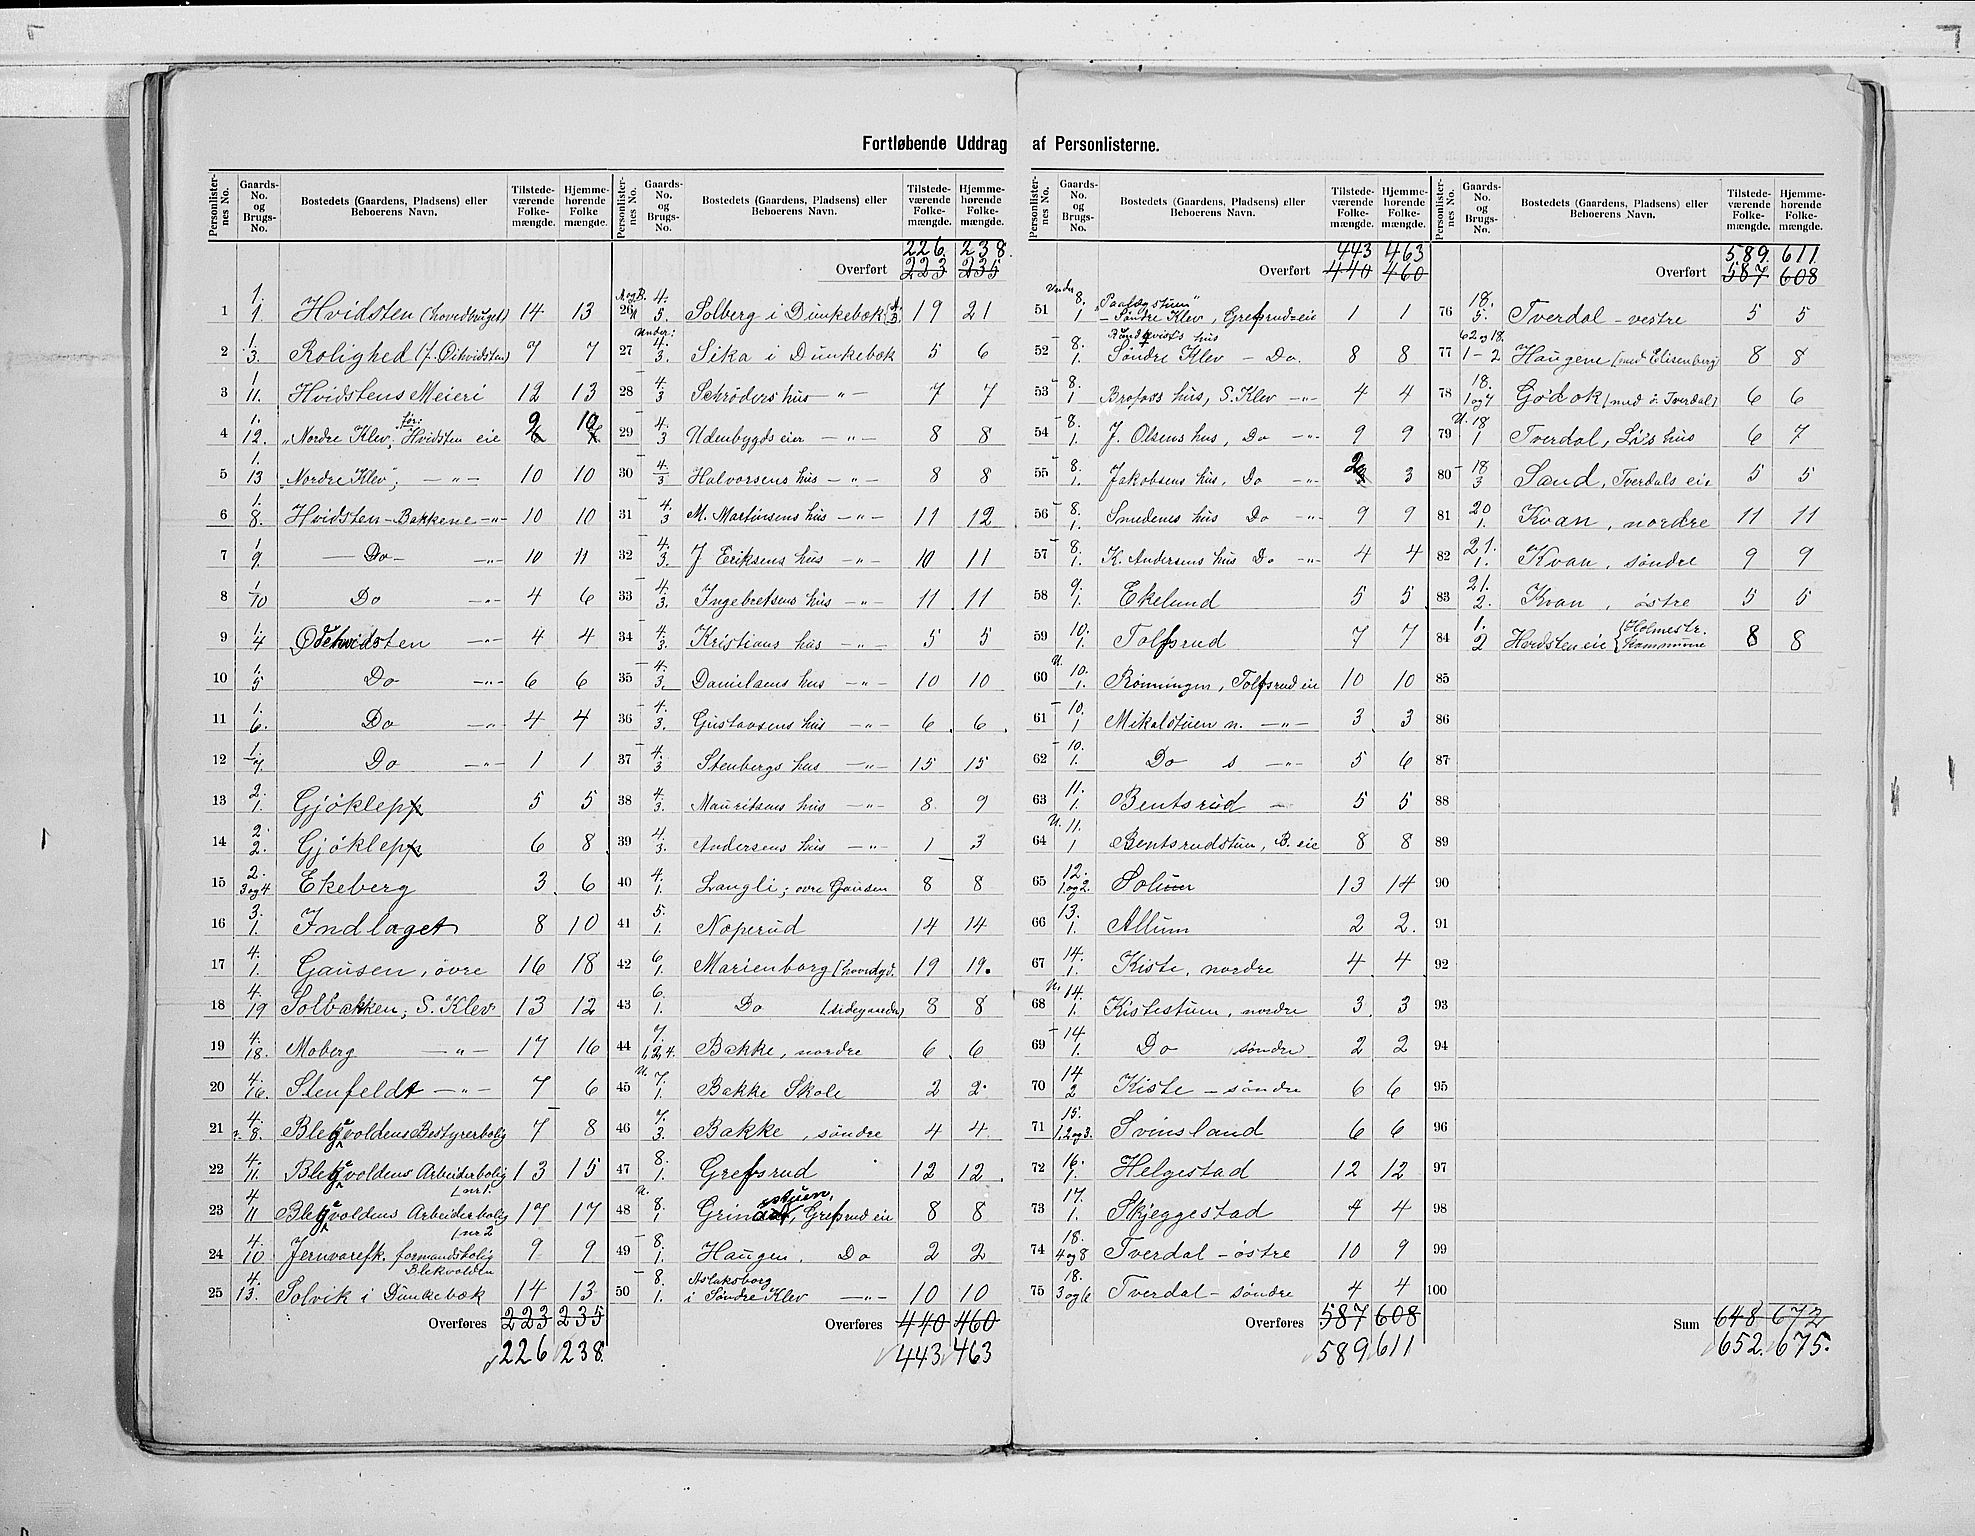 Fortløbende Uddrag af Personlisterne.
Personlisternes No. | Gaards-No. og Brugs-No. | Bostedets (Gaardens, Pladsens) eller Beboerens Navn. | Tilstedeværende Folkemængde. | Hjemmehørende Folkemængde.
1 | 1. 1 | Hvidsten (hovedbuget) | 14 | 13
2 | 1. 3. | Rolighed | 7 | 7
3 | 1. 11. | Hvidstens Meieri | 12 | 13
4 | 1. 12. | "Nordre Klev", før: Hvidsten eie | 9 | 10
5 | 1. 13 | "Nordre Klev"; —"— | 10 | 10
6 | 1. 8. | Hvidsten-Bakkene —"— | 10 | 10
7 | 1. 9. | —Do— —"— | 10 | 11
8 | 1. 10 | Do —"— | 4 | 6
9 | 1. 4 | Ødehvidsten —"— | 4 | 4
10 | 1. 5 | Do —"— | 6 | 6
11 | 1. 6. | Do —"— | 4 | 4
12 | 1. 7. | Do —"— | 1 | 1
13 | 2. 1. | Gjøklep | 5 | 5
14 | 2. 2. | Gjøklep | 6 | 8
15 | 2. 3 og 4. | Ekeberg | 3 | 6
16 | 3. 1. | Indlaget | 8 | 10
17 | 4. 1. | Gausen, øvre | 16 | 18
18 | 4. 19 | Solbakken, S. Klev | 13 | 12
19 | 4. 18. | Moberg —"— | 17 | 16
20 | 4. 16. | Stenfeldt —"— | 7 | 6
21 | 4. 8. | Blegvoldens Bestyrerbolig | 7 | 8
22 | 4. 11. | Blegvoldens Arbeiderbolig (nr 1. | 13 | 15
23 | 4 11 | Blegvoldens Arbeiderbolig (nr 2 | 17 | 17
24 | 4. 10 | Jernvarefk. formandsbolig Blekvolden | 9 | 9
25 | 4. 13. | Solvik i Dunkebæk | 14 | 13
Overføres 223 235
226 238
Personlisternes No. | Gaards-No. og Brugs-No. | Bostedets (Gaardens, Pladsens) eller Beboerens Navn. | Tilstedeværende Folkemængde. | Hjemmehørende Folkemængde.
226. 238.
Overført 223 235
26 | 4. 5. | Solberg i Dunkebæk | 19 | 21
27 | Under: 4. 3. | Sika i Dunkebæk | 5 | 6
28 | 4. 3 | Schrøders hus —"— | 7 | 7
29 | 4. 3 | Udenbygds eier —"— | 8 | 8
30 | 4. 3 | Halvorsens hus —"— | 8 | 8
31 | 4. 3 | M. Martinsens hus —"— | 11 | 12
32 | 4. 3. | J Eriksens hus —"— | 10 | 11
33 | 4. 3. | Ingebretsens hus —"— | 11 | 11
34 | 4. 3. | Kristians hus —"— | 5 | 5
35 | 4. 3. | Danielsens hus —"— | 10 | 10
36 | 4. 3. | Gustavsens hus —"— | 6 | 6
37 | 4. 3 | Stenbergs hus —"— | 15 | 15
38 | 4. 3. | Mauritsens hus —"— | 8 | 9
39 | 4. 3. | Andersens hus —"— | 1 | 3
40 | 4. 1. | Langli; øvre Gausen | 8 | 8
41 | 5. 1. | Noperud | 14 | 14
42 | 6. 1. | Marienborg (hovedgd. | 19 | 19.
43 | 6. 1. | Do (sidegaarden) | 8 | 8
44 | 7. 1,2 4. | Bakke, nordre | 6 | 6
45 | U. 7. 1. | Bakke Skole | 2 | 2
46 | 7. 3. | Bakke, søndre | 4 | 4
47 | 8. 1. | Grefsrud | 12 | 12
48 | U. 8. 1 | Grinstuen, Grefsrud eie | 8 | 8
49 | 8. 1. | Haugen. Do | 2 | 2
50 | 8. 1. | Aslaksborg i Søndre Klev —"— | 10 | 10
Overføres 440 460
443 463
Personlisternes No. | Gaards-No. og Brugs-No. | Bostedets (Gaardens, Pladsens) eller Beboerens Navn. | Tilstedeværende Folkemængde. | Hjemmehørende Folkemængde.
443 463
Overført 440 460
51 | Under 8. 1 | Søndre Klev, Grefsrud-eie | 1 | 1
52 | 8. 1. | Søndre Klev — Do. | 8 | 8
53 | 8. 1 | hus, S. Klev —"— | 4 | 4
54 | 8. 1. | J. Olsens hus, Do —"— | 9 | 9
55 | 8. 1. | Jakobsens hus, Do —"— | 2 | 3
56 | 8. 1. | Smedenes hus Do —"— | 9 | 9
57 | 8. 1. | K. Andersens hus Do —"— | 4 | 4
58 | 9. 1. | Ekelund | 5 | 5
59 | 10. 1. | Tolfsrud | 7 | 7
60 | U. 10. 1. | Rønningen, Tolfsrud eie | 10 | 10
61 | 10. 1 | Mikalstuen n. —"— | 3 | 3
62 | 10. 1. | Do s —"— | 5 | 6
63 | 11. 1. | Bentsrud | 5 | 5
64 | U. 11. 1 | Bentsrudstuen, B. eie | 8 | 8
65 | 12. 1. og 2. | Solum | 13 | 14
66 | 13. 1. | Allum | 2 | 2.
67 | 14. 1. | Kiste, nordre | 4 | 4
68 | U. 14. 1. | Kistestuen, nordre | 3 | 3
69 | 14 1. | Do (søndre) | 2 | 2
70 | 14 2 | Kiste — søndre | 6 | 6
71 | 15. 1, 2 og 3. | Svinsland | 6 | 6
72 | 16. 1. | Helgestad | 12 | 12
73 | 17. 1. | Skjeggestad | 4 | 4
74 | 18. 4 og 8 | Tverdal — østre | 10 | 9
75 | 18. 3 og 6 | Tverdal — søndre | 4 | 4
Overføres 587 608
589 611
Personlisternes No. | Gaards-No. og Brugs-No. | Bostedets (Gaardens, Pladsens) eller Beboerens Navn. | Tilstedeværende Folkemængde. | Hjemmehørende Folkemængde.
589. 611.
Overført 587 608
76 | 18. 5. | Tverdal — vestre | 5 | 5
77 | 62 og 18. 1-2 | Haugene (med Elisenberg) | 8 | 8
78 | 18. 1 og 7 | Godok (med ö. Tverdal) | 6 | 6
79 | U. 18 1 | Tverdal, hus | 6 | 7
80 | 18 3 | Sand, Tverdals eie | 5 | 5
81 | 20 1. | Kvan, nordre | 11 | 11
82 | 21. 1. | Kvan, søndre | 9 | 9
83 | 21. 2. | Kvan, østre | 5 | 5
84 | 1. 2 | Hvidsten eie (Holmestr. Kommune | 8 | 8
85
86
87
88
89
90
91
92
93
94
95
96
97
98
99
100
Sum 648 672
652. 675.